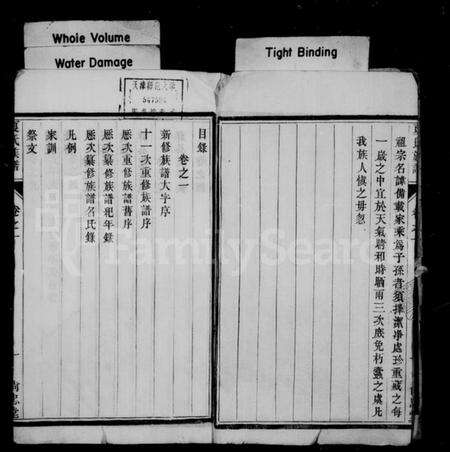 Whole Volume
Water Damage
Tight Binding
祖宗名諱備載家乘為子孫者須擇潔淨處珍重藏之每
一歲之中宜於天氣晴和時晒兩三次庶免朽蠹之虞凡
我族人慎之毋忽
目錄
卷之一
新修族譜大字序
十一次重修族譜序
歷次重修族譜舊序
歷次纂修族譜紀年錄
歷次纂修族譜名氏錄
凡例
家訓
祭文
氏族譜
卷之一
FamilySearch